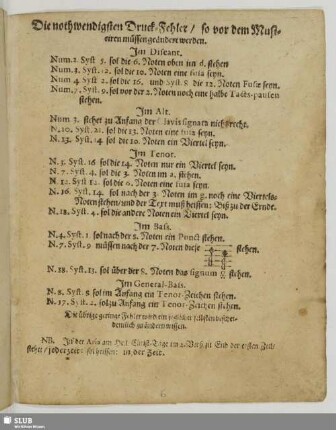 Die nothwendigsten Druck-Fehler / so vor dem Musi-
ciren müssen geändert werden.
Im Discant.
Num. 2. Syst. 5. sol die 6. Noten oben im d. stehen
Num. 3. Syst. 12. sol die 10. Noten eine fusa seyn.
Num 4. Syst 2. sol die 16. und Syst 8. die 12. Noten Fusæ seyn.
Num. 7. Syst. 9. sol vor der 2. Noten noch eine halbe Tacts-pausen
stehen.
Im Alt.
Num 3. stehet zu Anfang der Clavis signata nicht recht.
N. 10. Syst. 21. sol die 13. Noten eine fusa seyn.
N. 13. Syst. 14 sol die 10. Noten ein Viertel seyn.
Im Tenor.
N. 3. Syst. 16 sol die 14. Noten nur ein Viertel seyn.
N. 7. Syst. 4. sol die 3. Noten im a. stehen.
N 12. Syst. 12 sol die 6. Noten eine fusa seyn.
N. 16. Syst. 14. sol nach der 3. Noten im g. noch eine Viertels-
Noten stehen / und der Text muß heissen: Biß zu der Erude.
N. 18. Syst. 4. sol die andere Noten ein Viertel seyn.
Im Bass.
N. 4. Syst. 1. sol nach der 5. Noten ein Punct stehen.
N. 7. Syst. 9 müssen nach der 7. Noten diese stehen.
N. 18. Syst. 11. sol über der 8. Noten das signum stehen.
Im General-Bass.
N. 8. Syst. 8 sol im Anfang ein Tenor-Zeichen stehen.
N. 17. Syst. 2. sol zu Anfang ein Tenor-Zeichen stehen.
Die übrige geringe Fehler wird ein jeglicher selbsten beschei-
dentlich zu ändern wissen.
NB. In der Aria am Heil. Christ-Tage im 2. Vers zu End der ersten Zeile
stehet / jederzeit: sol heissen: in der Zeit.
SLUB